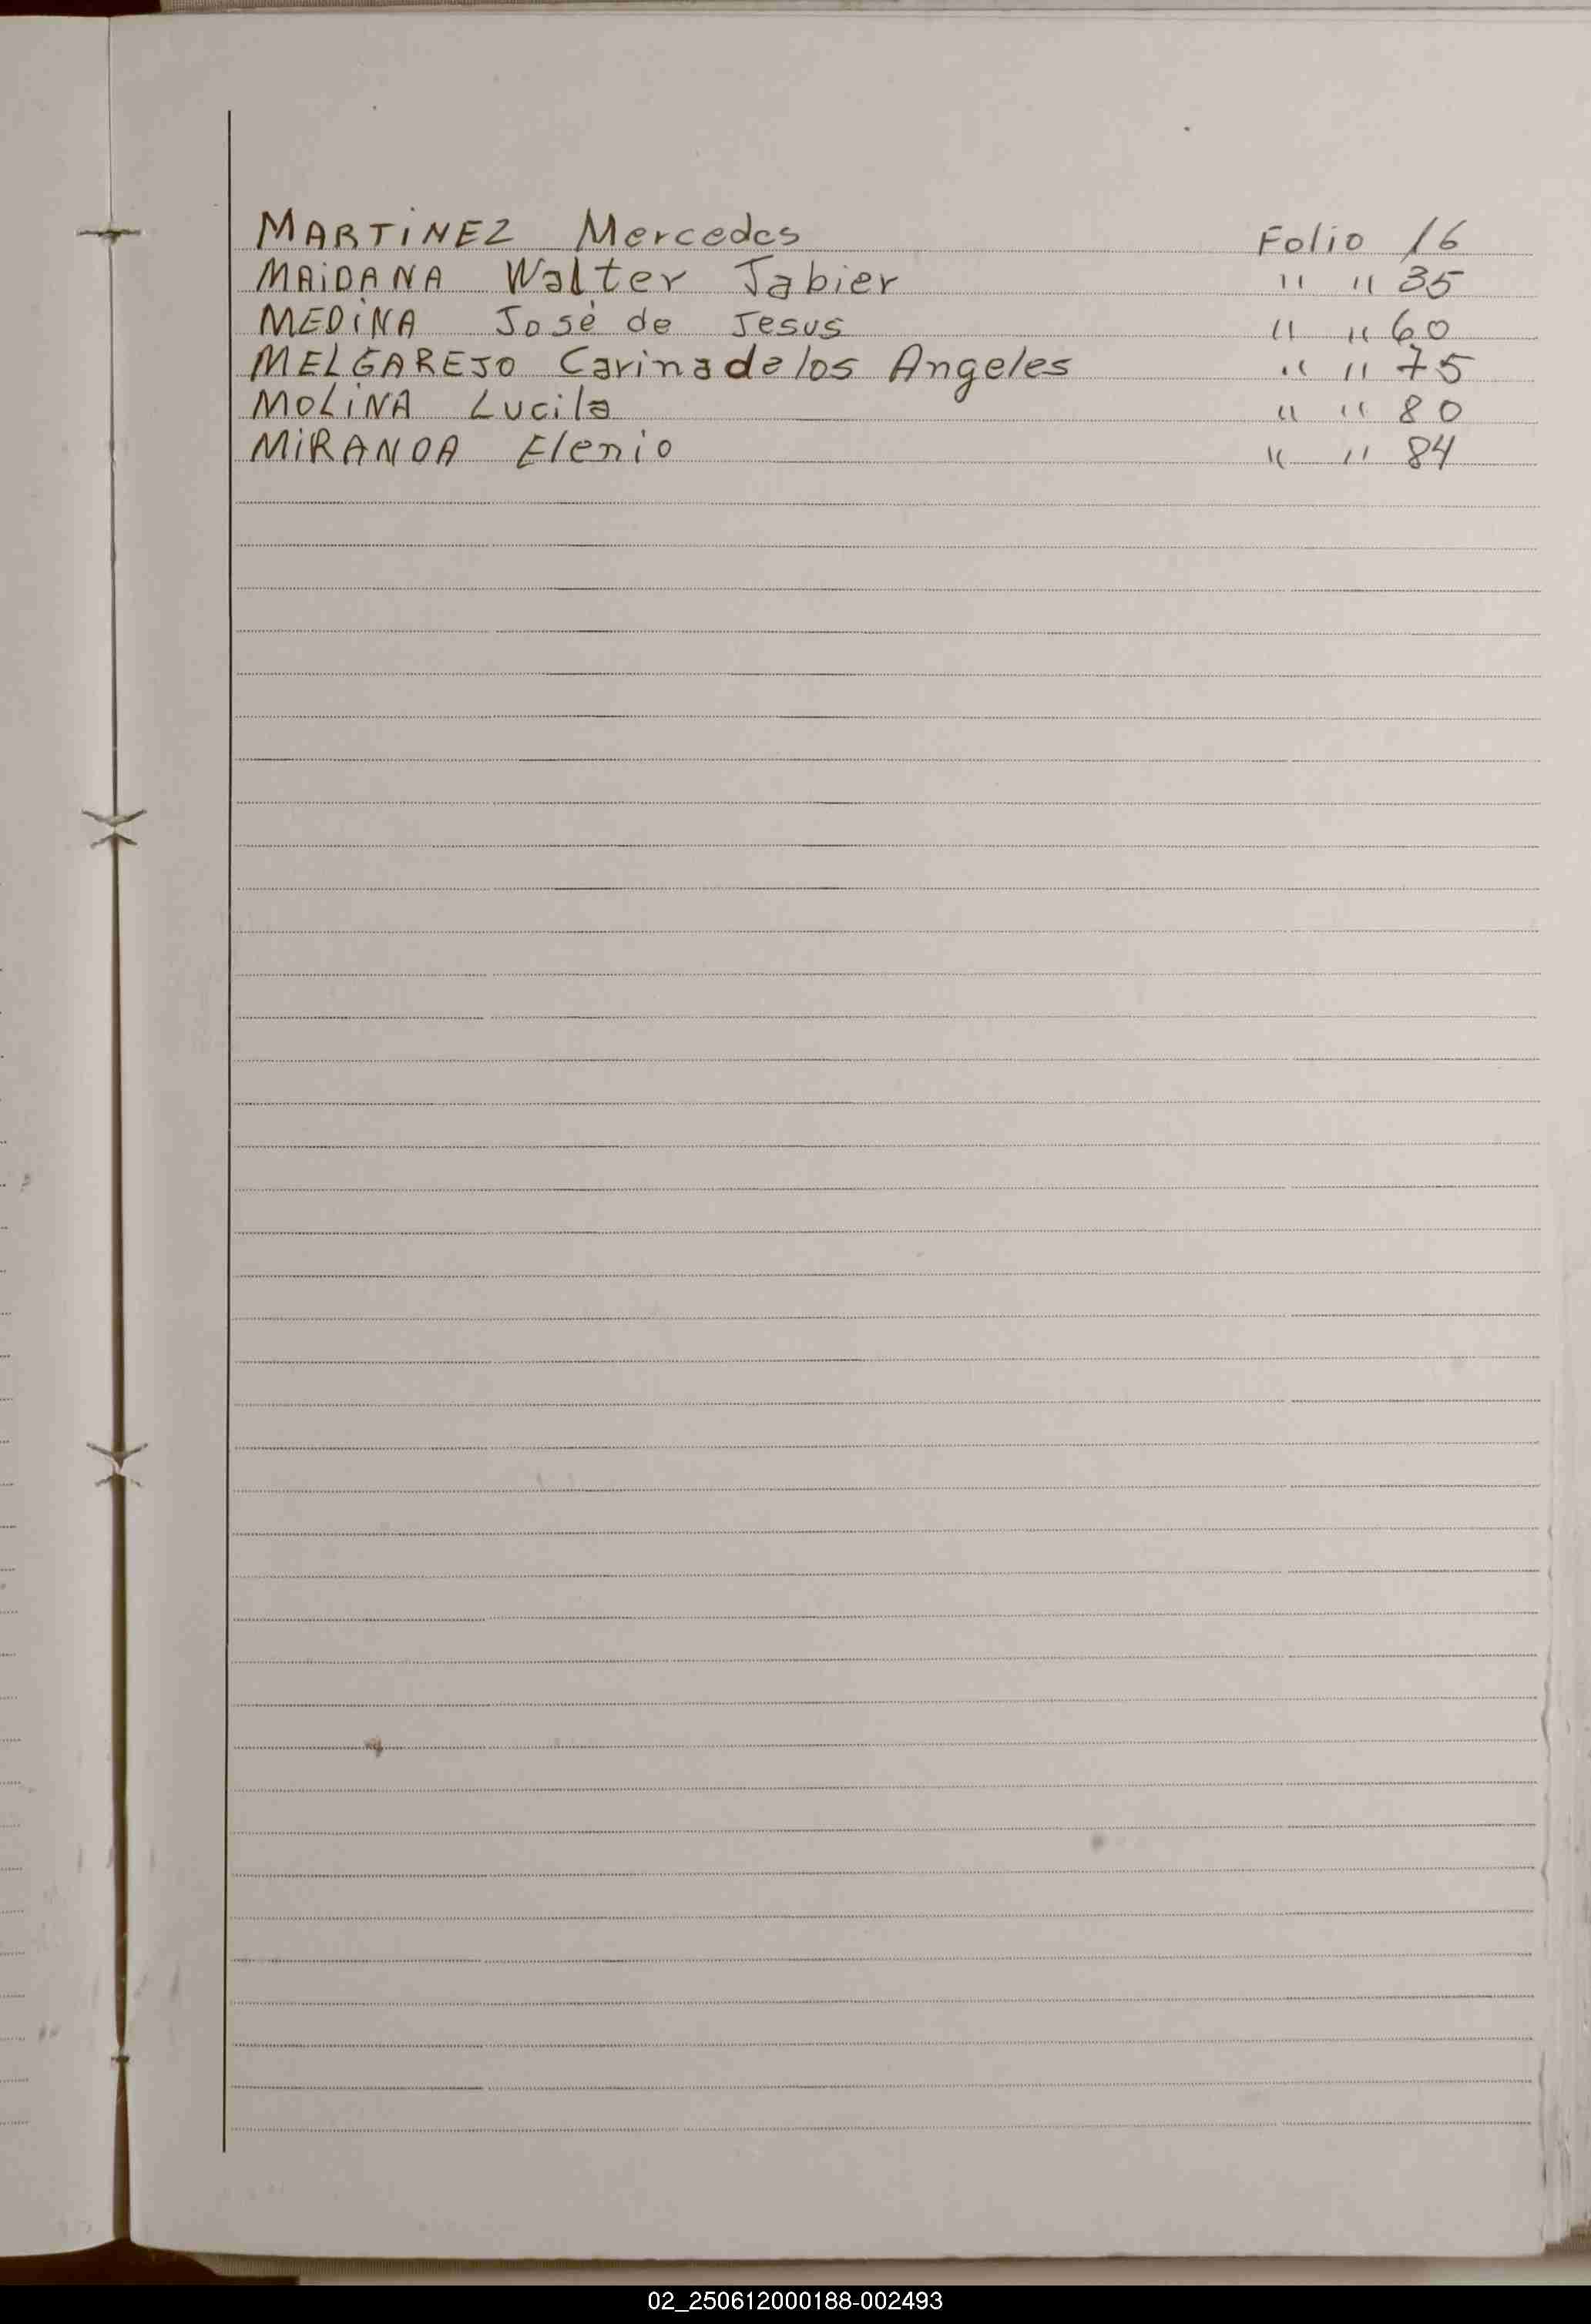 MARTINEZ Mercedes Folio 16
MAIDANA Walter Jabier " " 35
MEDINA José de Jesus " " 60
MELGAREJO Carina de los Angeles " " 75
MOLINA Lucila " " 80
MIRANDA Elenio " " 84
02_250612000188-002493